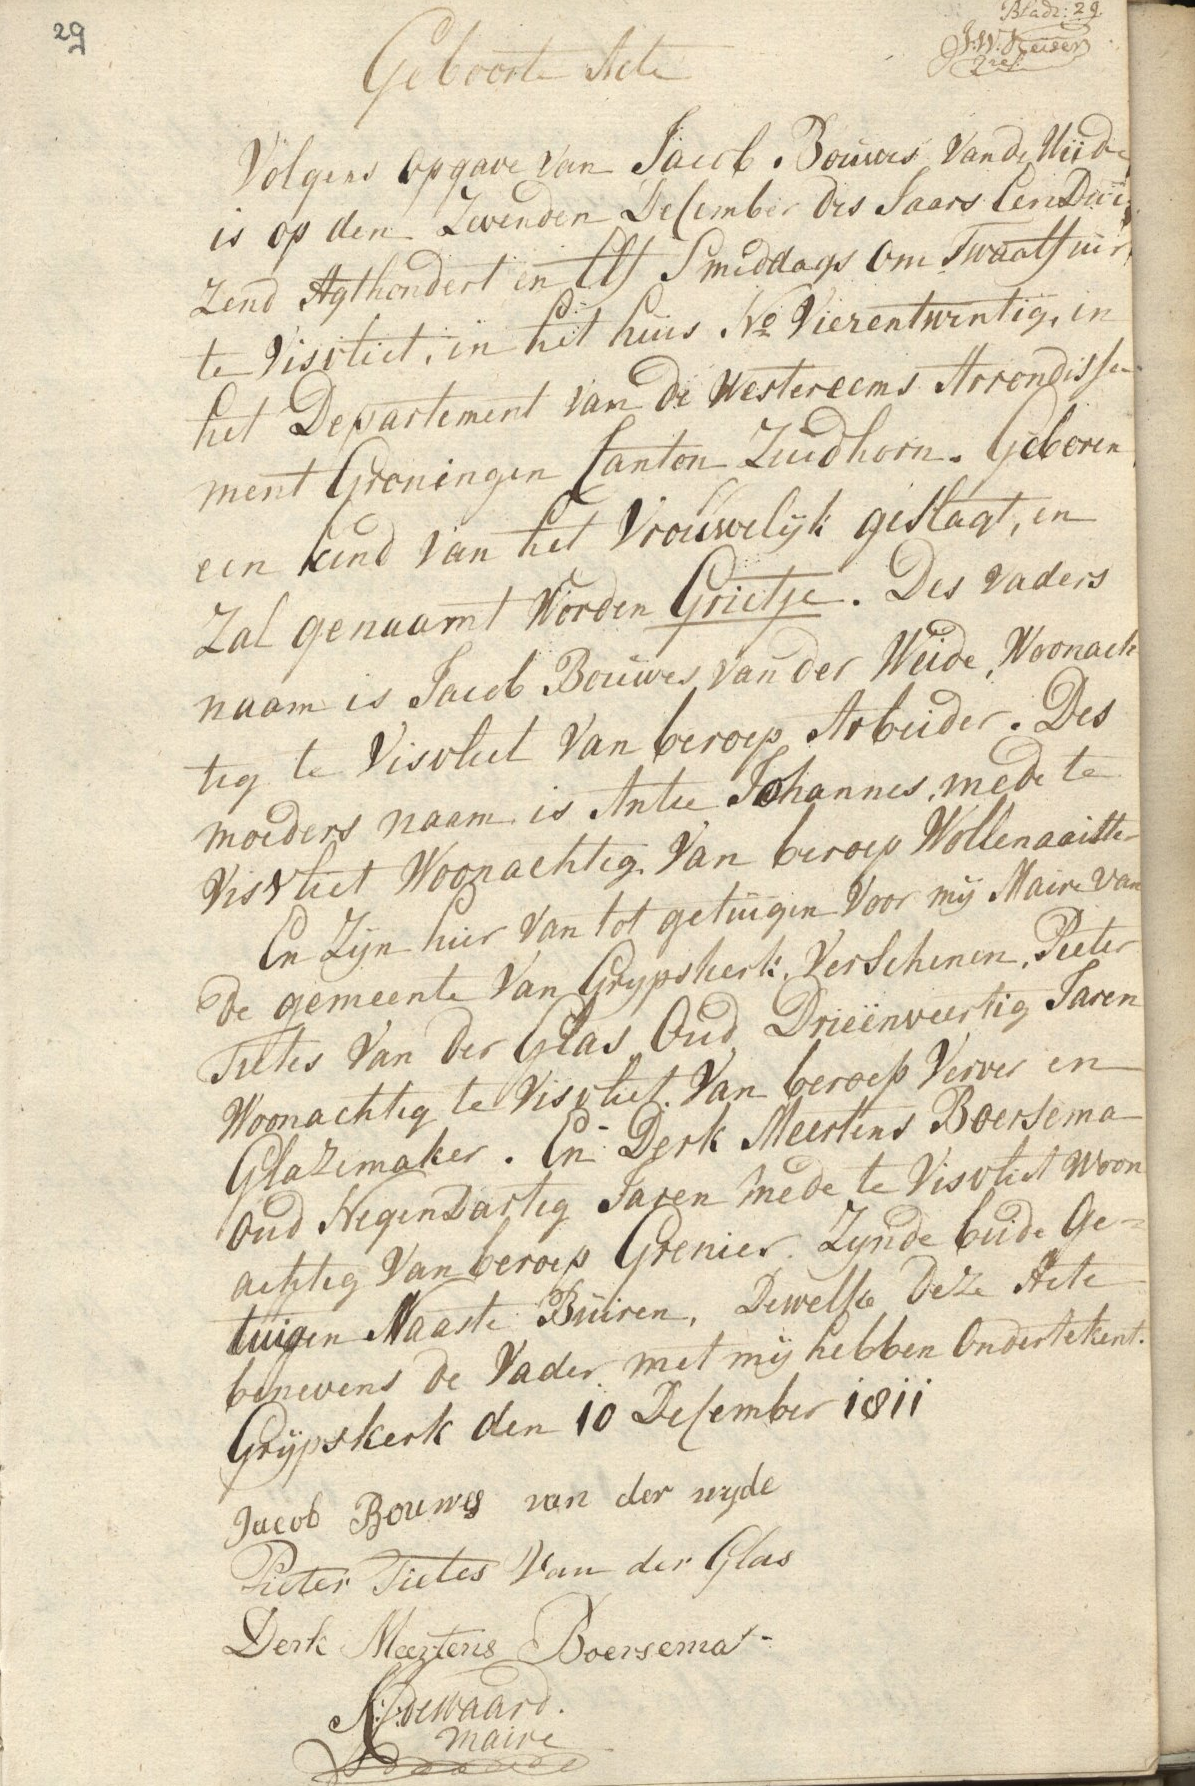 29
Bladz: 29
J.W. Keiser
Geboorte Acte
Volgens opgave van Jacob Bouwes Van de Weide
is op den Zevenden December des Jaars Een Dui
zend Agthondert en Elf Smiddags Om Twaalf uur
te Visvliet, in het huis No Vierentwintig, in
het Departement van de Westereems Arrondisse
ment Groningen Canton Zuidhorn. Geboren
een kind van het Vrouwelijk geslagt, en
Zal genaamt Worden Grietje. Des vaders
naam is Jacob Bouwes van der Weide, Woonach
tig te Visvliet Van beroep Arbeider. Des
moeders naam is Antie Johannes, mede te
Visvliet Woonachtig Van beroep Wollenaaister
En Zijn hier Van tot getuigen Voor mij Maire van
de gemeente Van Grypskerk, Verschenen, Pieter
Tietes Van der Glas Oud Drieënveertig Jaren
Woonachtig te Visvliet Van beroep Verver en
Glazemaker. En Derk Meertens Boersema
Oud Negendartig Jaren mede te Visvliet Woon
achtig Van beroep Grenier. Zynde beide Ge=
tuigen Naaste Buiren, Dewelke Deze Acte
benevens de Vader met mij hebben Ondertekent.
Grijpskerk den 10 December 1811
Jacob Bouwes van der wyde
Pieter Tietes Van der Glas
Derk Meertens Boersema
dewaard.
maire